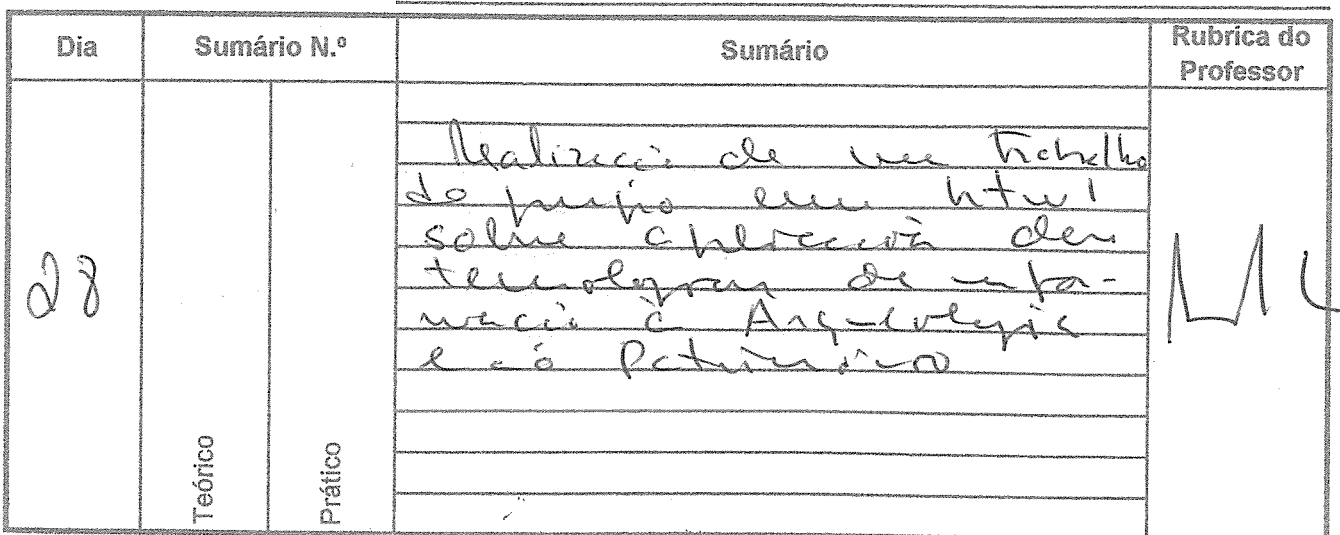 Dia Sumário N.º Sumário Rubrica do Professor
28
Teórico
Prático
Realização de um trabalho
de grupo em html
sobre aplicação das
tecnologias de infor-
mação à Arqueologia
e ao Património